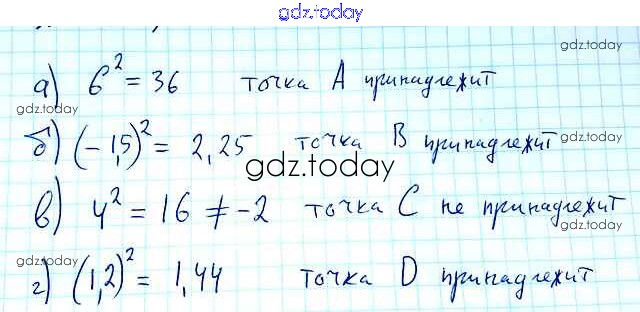 gdz.today
gdz.today
а) 6² = 36 точка A принадлежит
gdz.today
gdz.today
б) (-1,5)² = 2,25 точка B принадлежит
gdz.today
в) 4² = 16 ≠ -2 точка C не принадлежит
gdz.today
gdz.today
г) (1,2)² = 1,44 точка D принадлежит